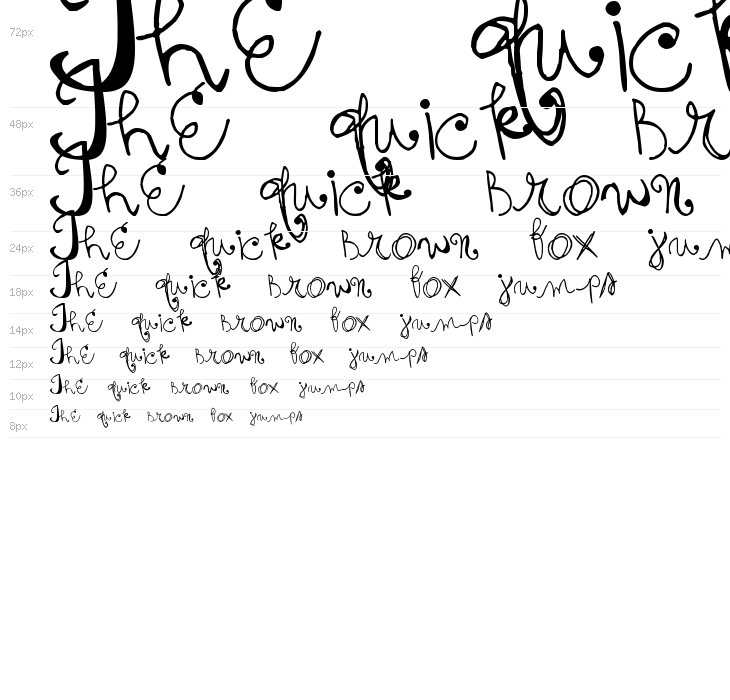 72px The quick
48px The quick Br
36px The quick Brown
24px The quick Brown fox jum
18px The quick Brown fox jumps
14px The quick Brown fox jumps
12px The quick Brown fox jumps
10px The quick Brown fox jumps
8px The quick Brown fox jumps